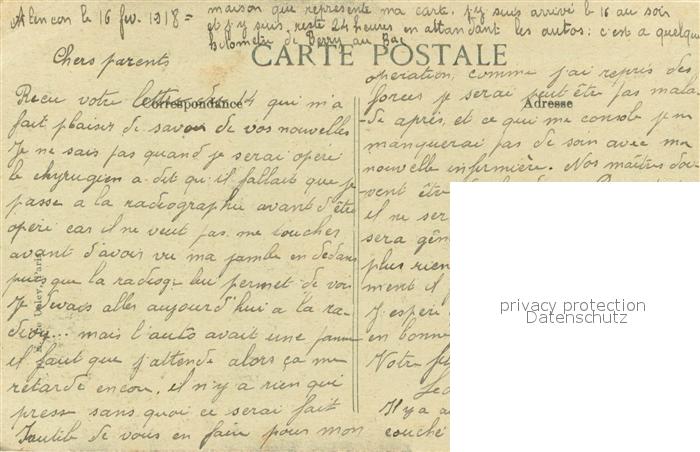 Alencon le 16 fev. 1918 =
maison que représente ma carte. j'y suis arrivé le 16 au soir
et j'y suis resté 24 heures en attendant les autos : c'est a quelque
kilometre de Berry au Bac
CARTE POSTALE
Chers parents
Correspondance
Adresse
Recu votre lettre du 14 qui m'a
fait plaisir de savoir de vos nouvelles
Je ne sais pas quand je serai opéré
le chyrugien a dit qu'il fallait que je
passe a la radiographie avant d'être
opéré car il ne veut pas me toucher
avant d'avoir vu ma jambe en dedans
puis que la radiogr lui permet de voir
Je devais aller aujourd'hui a la ra-
diog... mais l'auto avait une panne
il faut que j'attende alors ça me
retarde encore. il n'y a rien qui
presse sans quoi ce serai fait
Inutile de vous en faire pour mon
operation, comme j'ai repris des
forces je serai peut être pas mala-
de aprés, et ce qui me console je ne
manquerai pas de soin avec ma
nouvelle enfirmière. Nos maîtres doi-
vent être
il ne ser
sera gên
plus rien
ment il
J'espère
en bonne
Votre
Il y a
couché
privacy protection
Datenschutz